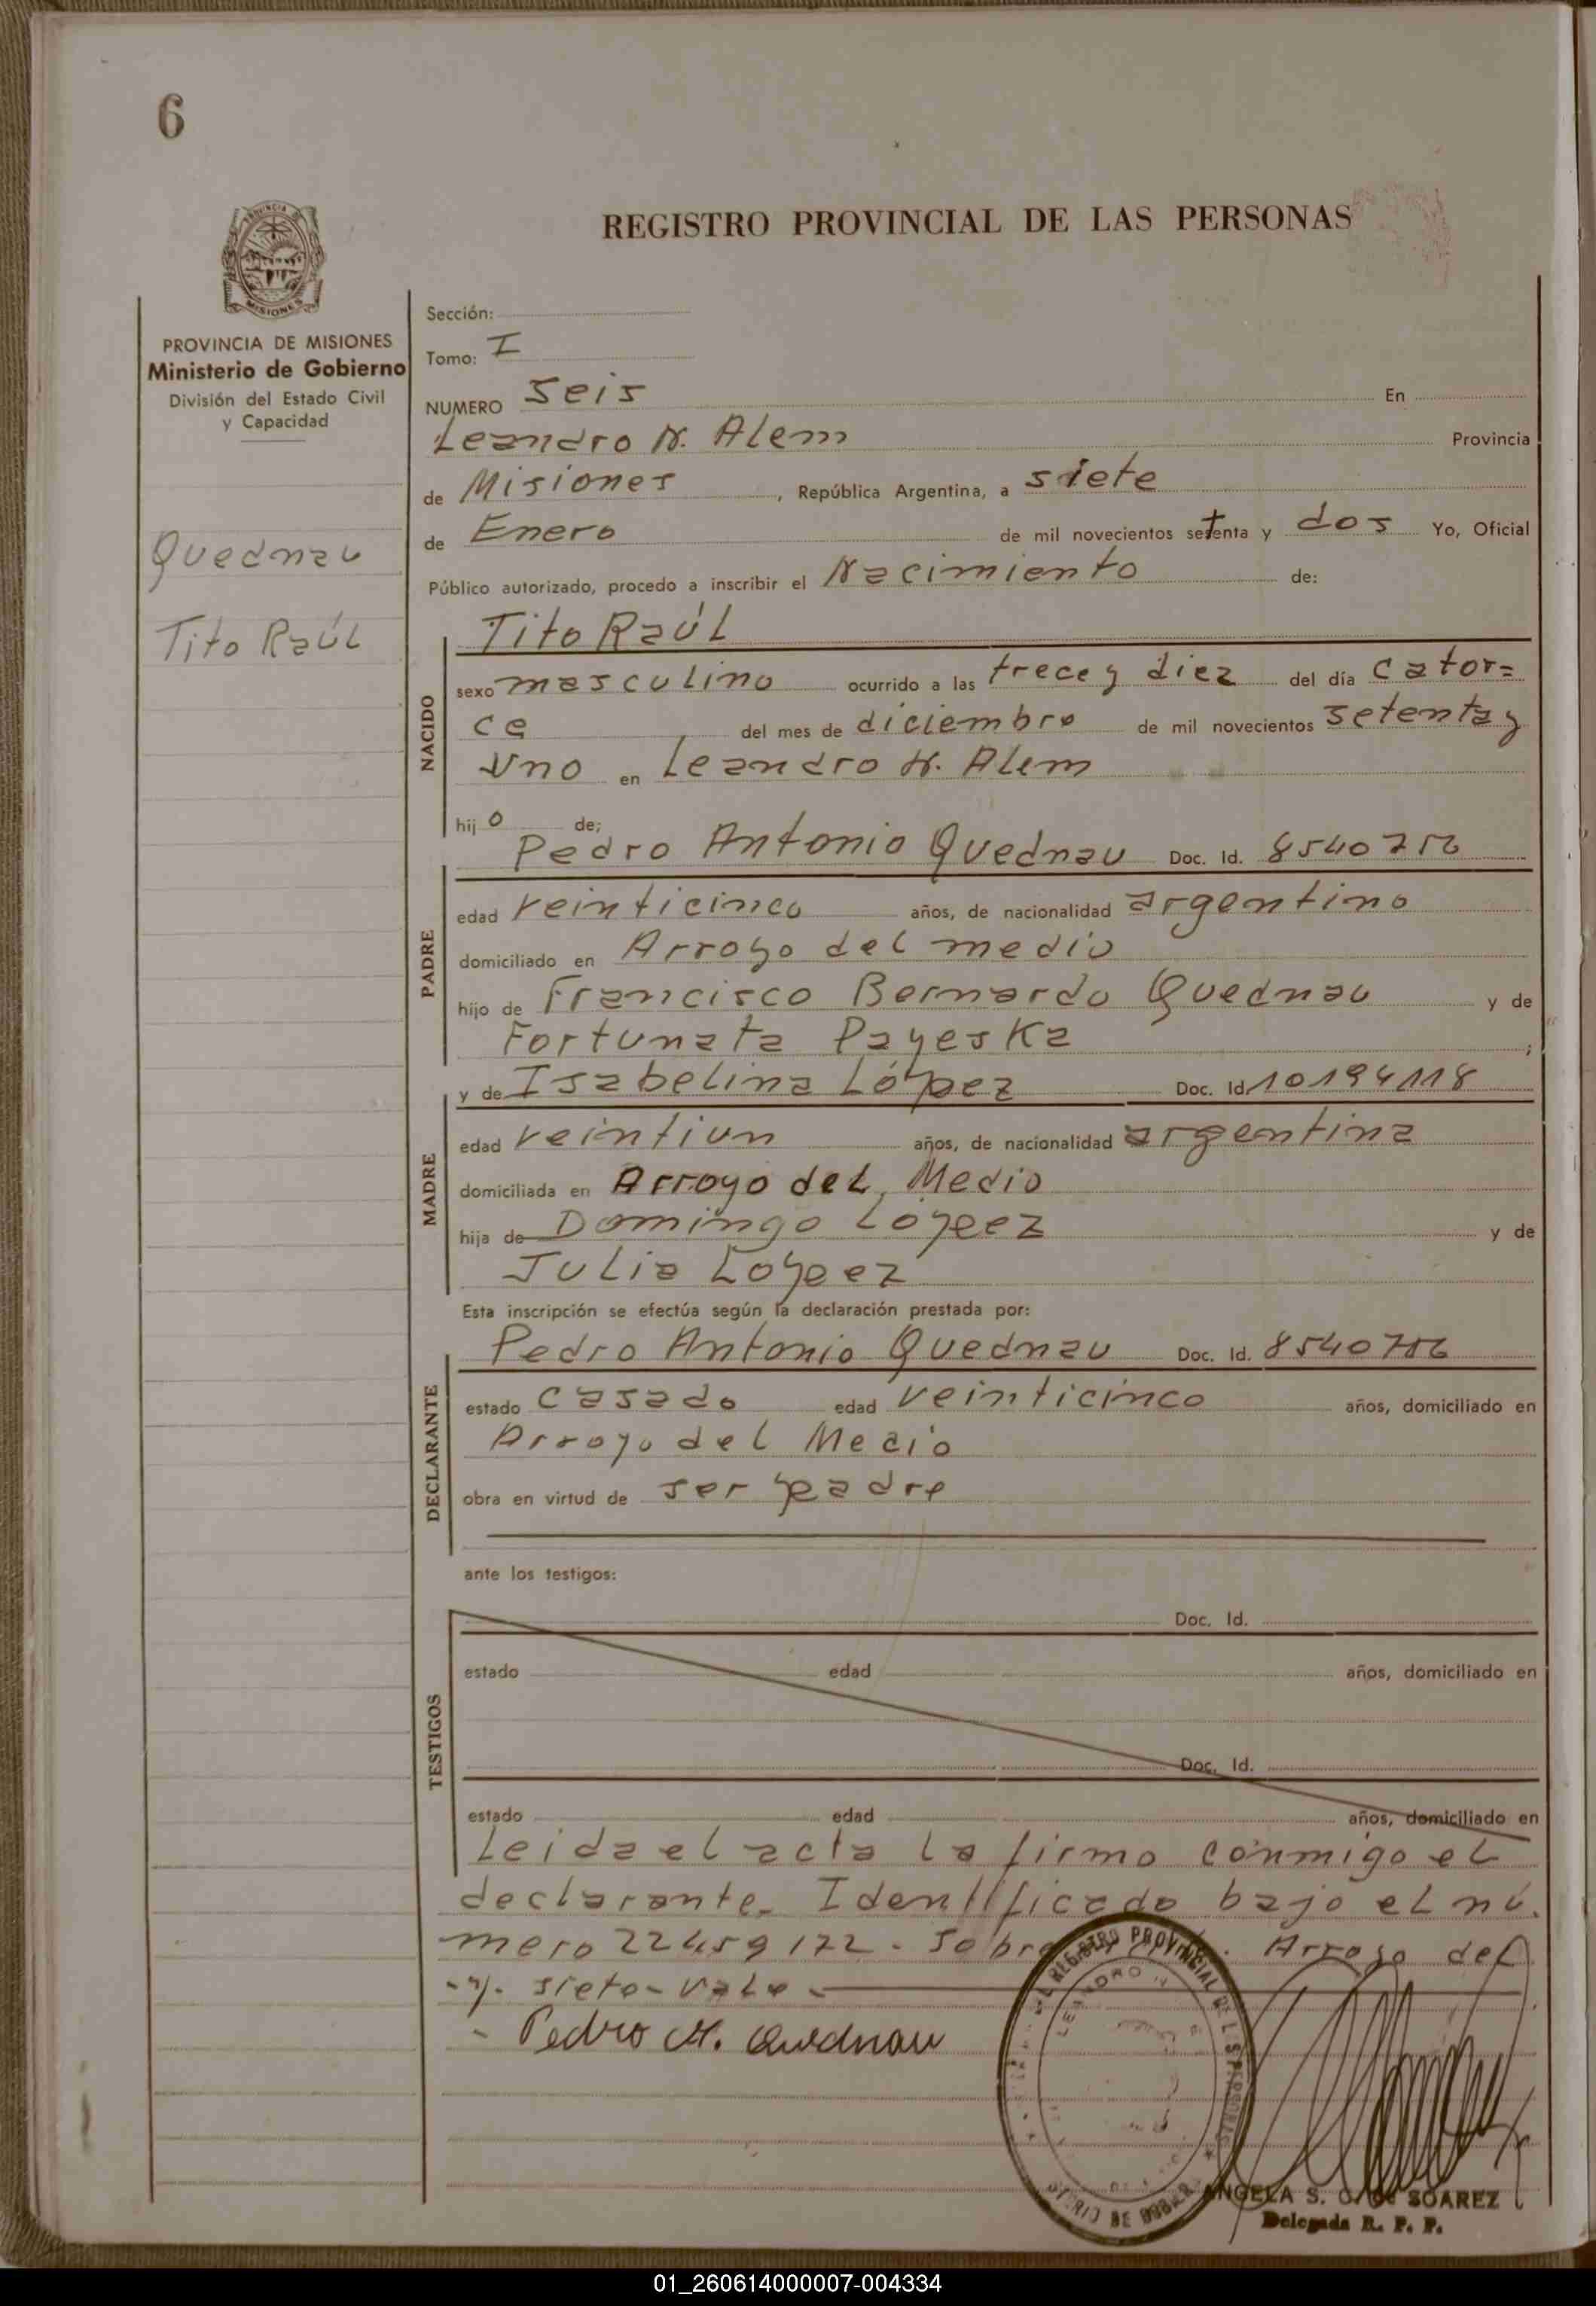 6
REGISTRO PROVINCIAL DE LAS PERSONAS
PROVINCIA DE
MISIONES
PROVINCIA DE MISIONES
Ministerio de Gobierno
División del Estado Civil
y Capacidad
Quednau
Tito Raúl
Sección:
Tomo: I
NUMERO Seis En
Leandro N. Alem Provincia
de Misiones, República Argentina, a siete
de Enero de mil novecientos setenta y dos Yo, Oficial
Público autorizado, procedo a inscribir el Nacimiento de:
NACIDO
Tito Raúl
sexo masculino ocurrido a las trece y diez del día cator=
ce del mes de diciembre de mil novecientos setenta y
uno en Leandro N. Alem
hijo de;
PADRE
Pedro Antonio Quednau Doc. Id. 8540756
edad veinticinco años, de nacionalidad argentino
domiciliado en Arroyo del medio
hijo de Francisco Bernardo Quednau y de
Fortunata Payeska ;
MADRE
y de Isabelina López Doc. Id. 10194118
edad veintiun años, de nacionalidad argentina
domiciliada en Arroyo del Medio
hija de Domingo López y de
Julia López
Esta inscripción se efectúa según la declaración prestada por:
DECLARANTE
Pedro Antonio Quednau Doc. Id. 8540756
estado casado edad veinticinco años, domiciliado en
Arroyo del Medio
obra en virtud de ser padre
ante los testigos:
TESTIGOS
Doc. Id.
estado edad años, domiciliado en
Doc. Id.
estado edad años, domiciliado en
Leida el acta la firmo conmigo el
declarante. Identificado bajo el nú.
mero 22459172. Sobre Arroyo del
-y. siete-vale-
Pedro A. Quednau
REGISTRO PROVINCIAL DE LAS PERSONAS
LEANDRO N
ANGELA S. C. de SOAREZ
Delegada R. P. P.
01_260614000007-004334